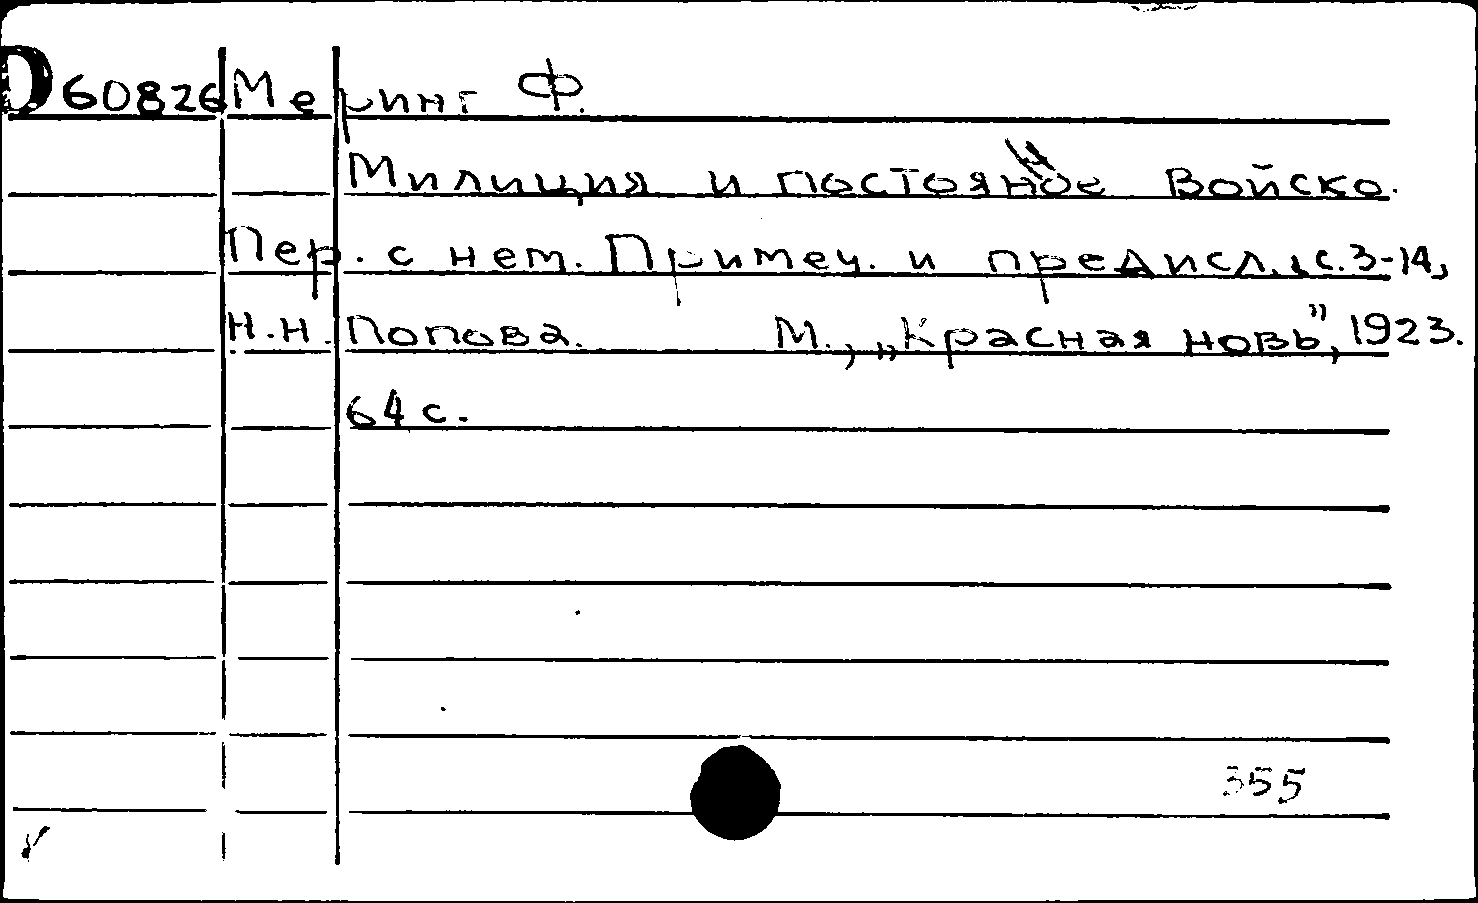 D60826 Меринг Ф.
Милиция и постоянное войско.
Пер. с нем. Примеч. и предисл., с. 3-14,
Н.Н. Попова. М., „Красная новь", 1923.
64 с.
355